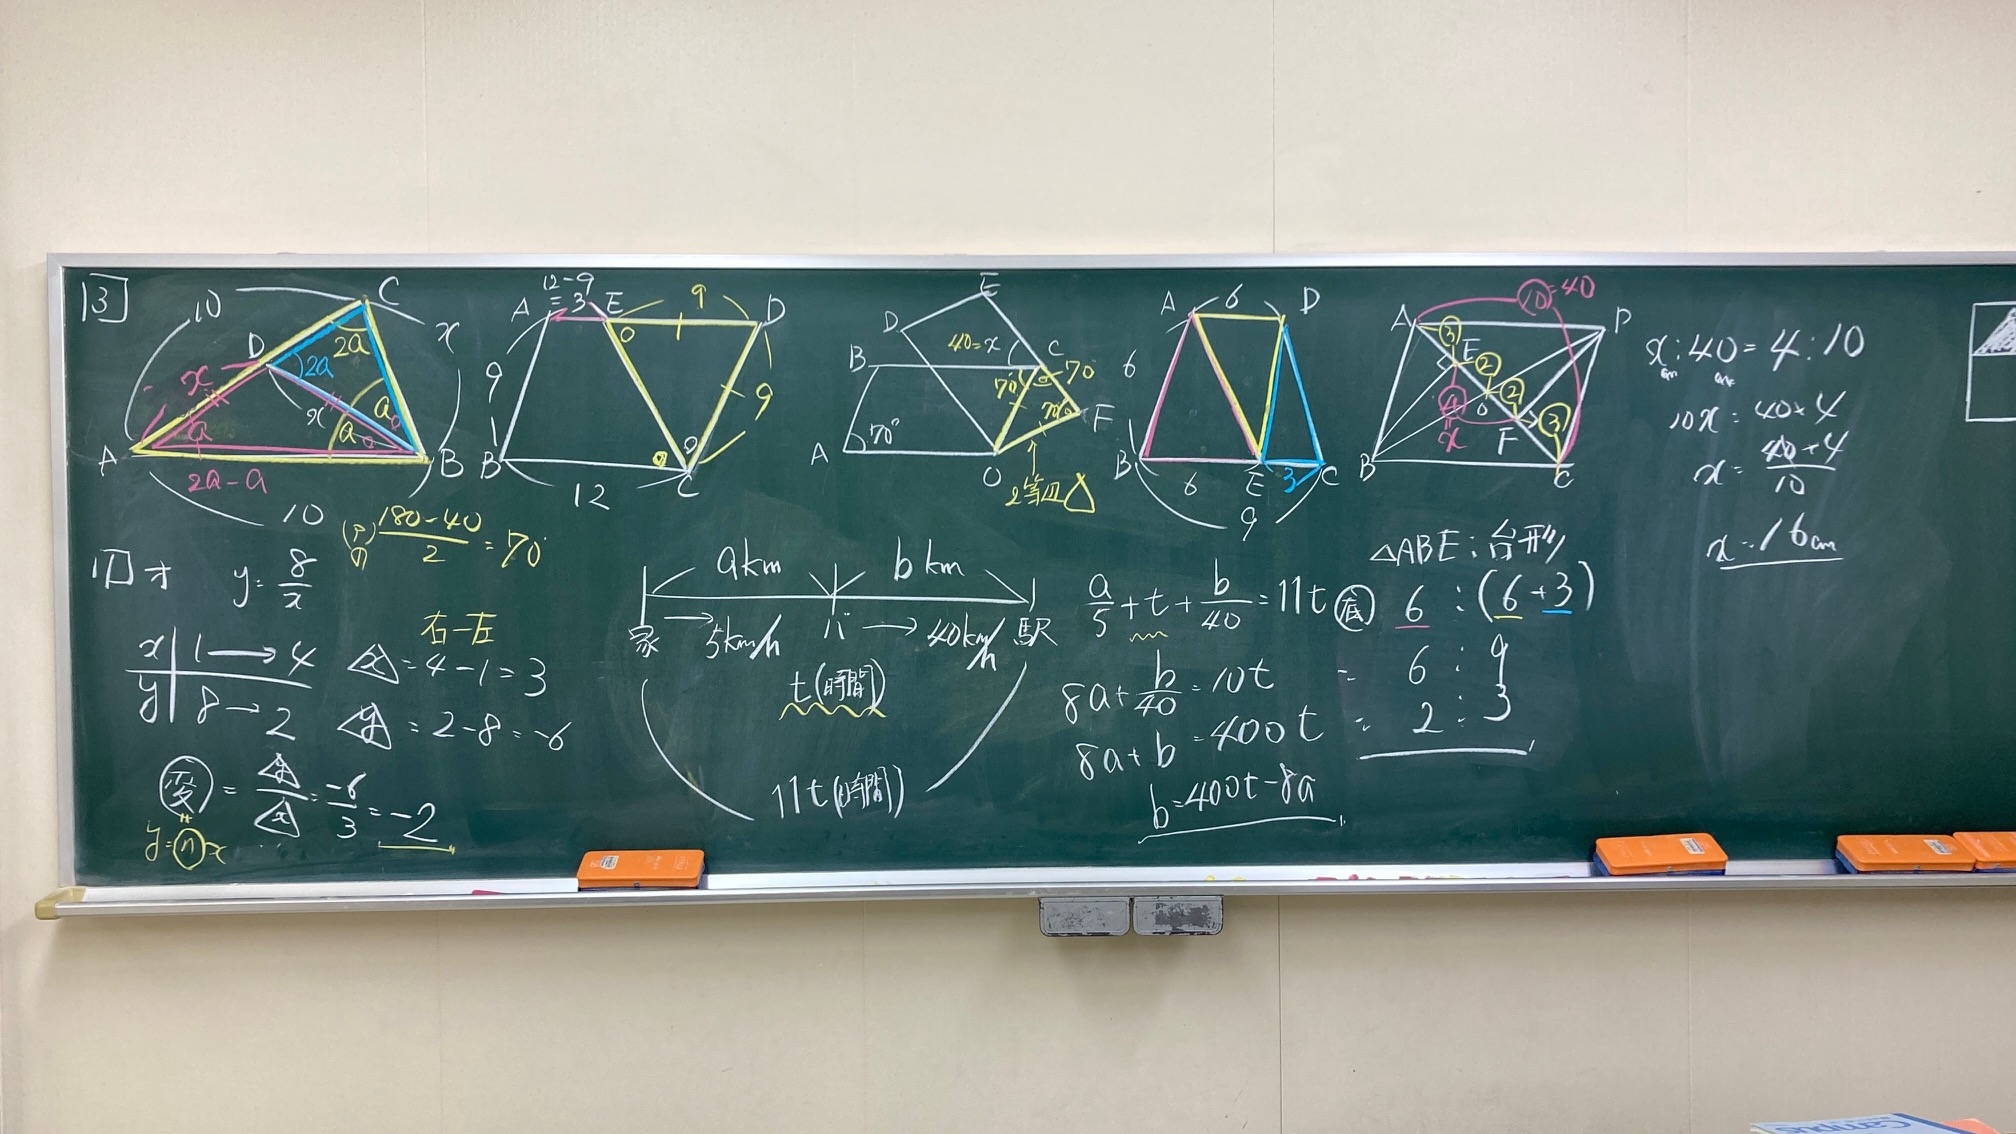 13
10
C
D
x
2a
2a
x
x
a
a
a
A
B
2a-a
10
12-9
=3
A
E
9
D
9
9
B
12
C
E
D
B
40=x
C
70°
70
70°
F
A
O
2等辺△
A
6
D
6
B
6
E
3
C
9
A
10=40
P
3
E
2
4
x
O
2
F
3
B
C
x:40=4:10
10x=40×4
x=40×4/10
x=16cm
17 オ
y=8/x
(180-40)/2=70°
右-左
x 1→4
y 8→2
△x=4-1=3
△y=2-8=-6
変=△y/△x=-6/3=-2
y=nx
akm
bkm
家
→5km/h
バ
→40km/h
駅
t(時間)
11t(時間)
a/5+t+b/40=11t
8a+b/40=10t
8a+b=400t
b=400t-8a
△ABE:台形
底 6:(6+3)
=6:9
=2:3
Campus